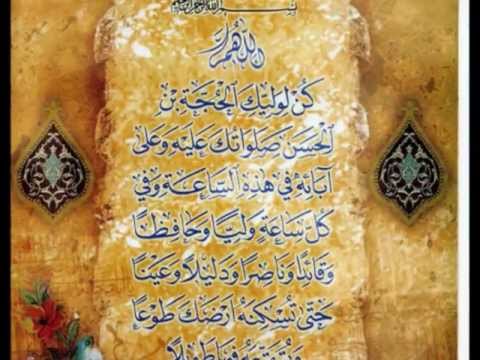 بسم الله الرحمن الرحيم
اللهم
كُنْ لِوَلِيِّكَ الْحُجَّةِ بْنِ
الْحَسَنِ صَلَوَاتُكَ عَلَيْهِ وَعَلَى
آبَائِهِ فِي هَذِهِ السَّاعَةِ وَفِي
كُلِّ سَاعَةٍ وَلِيًّا وَحَافِظًا
وَقَائِدًا وَنَاصِرًا وَدَلِيلًا وَعَيْنًا
حَتَّى تُسْكِنَهُ أَرْضَكَ طَوْعًا